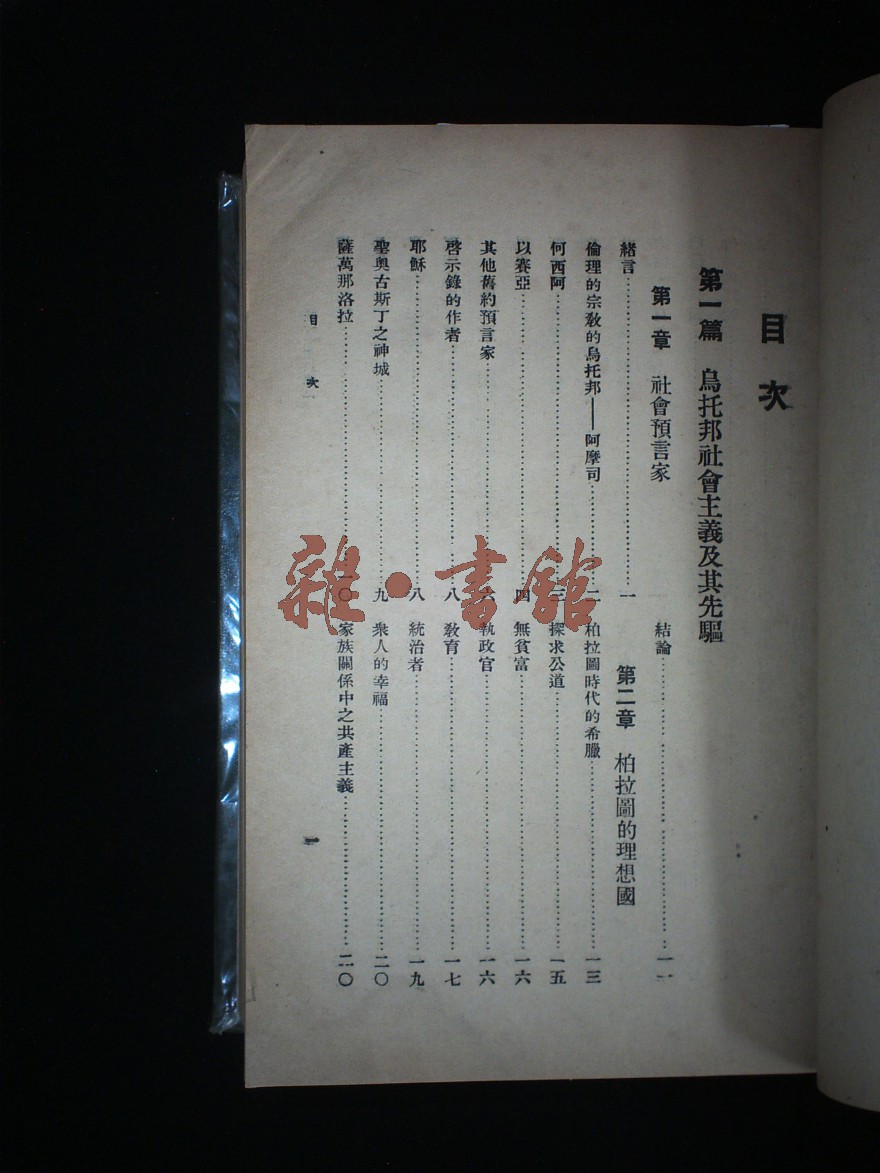 目次
第一篇 烏托邦社會主義及其先驅
第一章 社會預言家
緒言……一
倫理的宗教的烏托邦——阿摩司……二
何西阿……三
以賽亞……四
其他舊約預言家……六
啓示錄的作者……八
耶穌……八
聖奧古斯丁之神城……九
薩萬那洛拉……一〇
結論……一一
第二章 柏拉圖的理想國
柏拉圖時代的希臘……一三
探求公道……一五
無貧富……一六
執政官……一六
教育……一七
統治者……一九
衆人的幸福……二〇
家族關係中之共產主義……二〇
目次
一
雜·書館